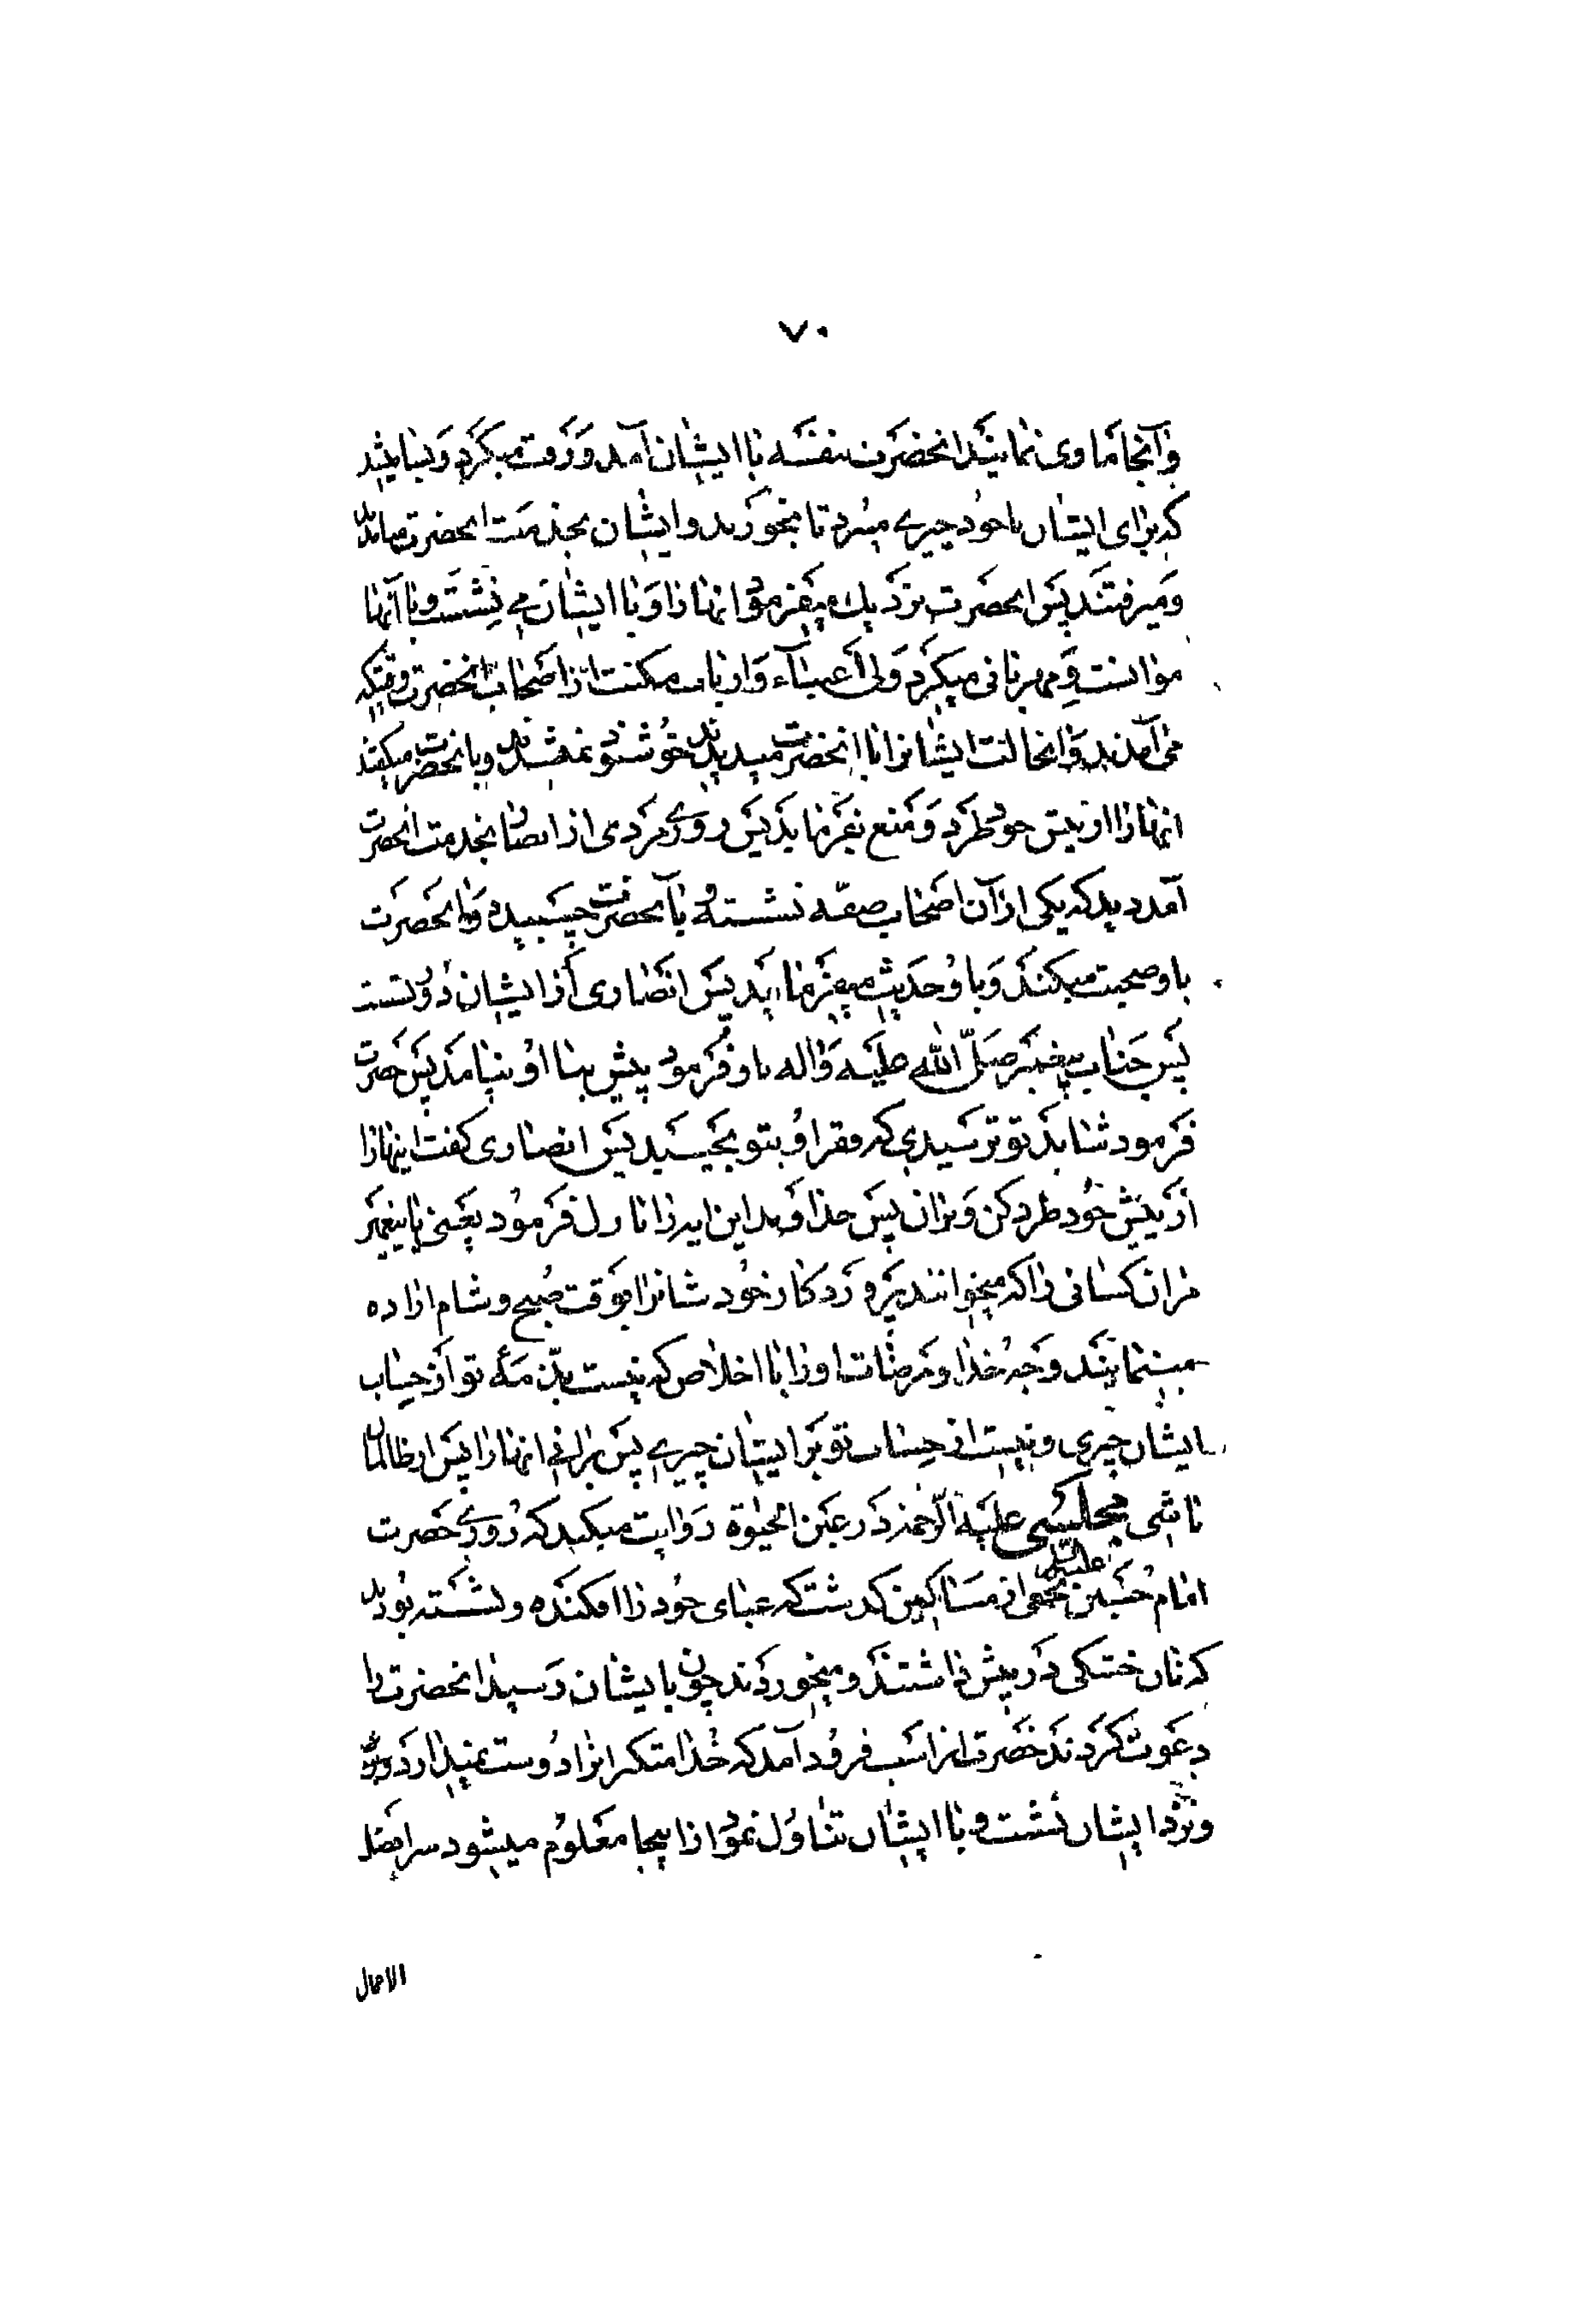 ۷۰
و آنجا ماوی نمایند آنحضرت بنفسه با ایشان آمد و رفت میکرد و بسا میشد
که برای ایشان با خود چیزی میبرد تا بخورند و ایشان بخدمت آنحضرت میآمدند
و میرفتند پس آنحضرت نزدیک میفرمود آنها را و با ایشان می نشست و با آنها
موانست و مهربانی میکرد ولی اغنیآء و ارباب مکنت از اصحاب آنحضرت وقتیکه
می آمدند و آنحالت ایشانرا با آنحضرت میدیدند خوشنود نمیشدند و بانحضرت میگفتند
آنها را از پیش خود طرد و منع بفرماید پس روزی مردی از انصار بخدمت آنحضرت
آمد دید که یکی از آن اصحاب صفه نشسته و بآنحضرت چسبیده و آنحضرت
با او صحبت میکند و با او حدیث میفرماید پس انصاری از ایشان دور نشست
پس جناب پیغمبر صلّی الله علیه و اله باو فرمود پیش بیا او نیامد پس حضرت
فرمود شاید تو ترسیدی که فقر او بتو بچسبد پس انصاری گفت اینها را
از پیش خود طرد کن و بران پس خداوند این ایه را نازل فرمود یعنی ای پیغمبر
مران کسانی را که میخوانند پروردکار خودشانرا بوقت صبح و شام اراده
مینمایند وجه خدا و مرضات او را با اخلاص که نیست بر ذمه تو از حساب
ایشان چیزی و نیست از حساب تو بر ایشان چیزی پس برانی آنها را پس از ظالمان
باشی مجلسی علیه الرحمه در عین الحیوة روایت میکند که روزی حضرت
امام حسین علیه السلام بجمعی از مساکین گذشت که عبای خود را افکنده و نشسته بودند
که نان خشکی در پیش داشتند و میخوردند چون بایشان رسید آنحضرت را
دعوت کردند حضرت از اسب فرود آمد که خدا متکبرانرا دوست نمیدارد
و نزد ایشان نشست و با ایشان تناول نمود از اینجا معلوم میشود سر افضل
الاعمال